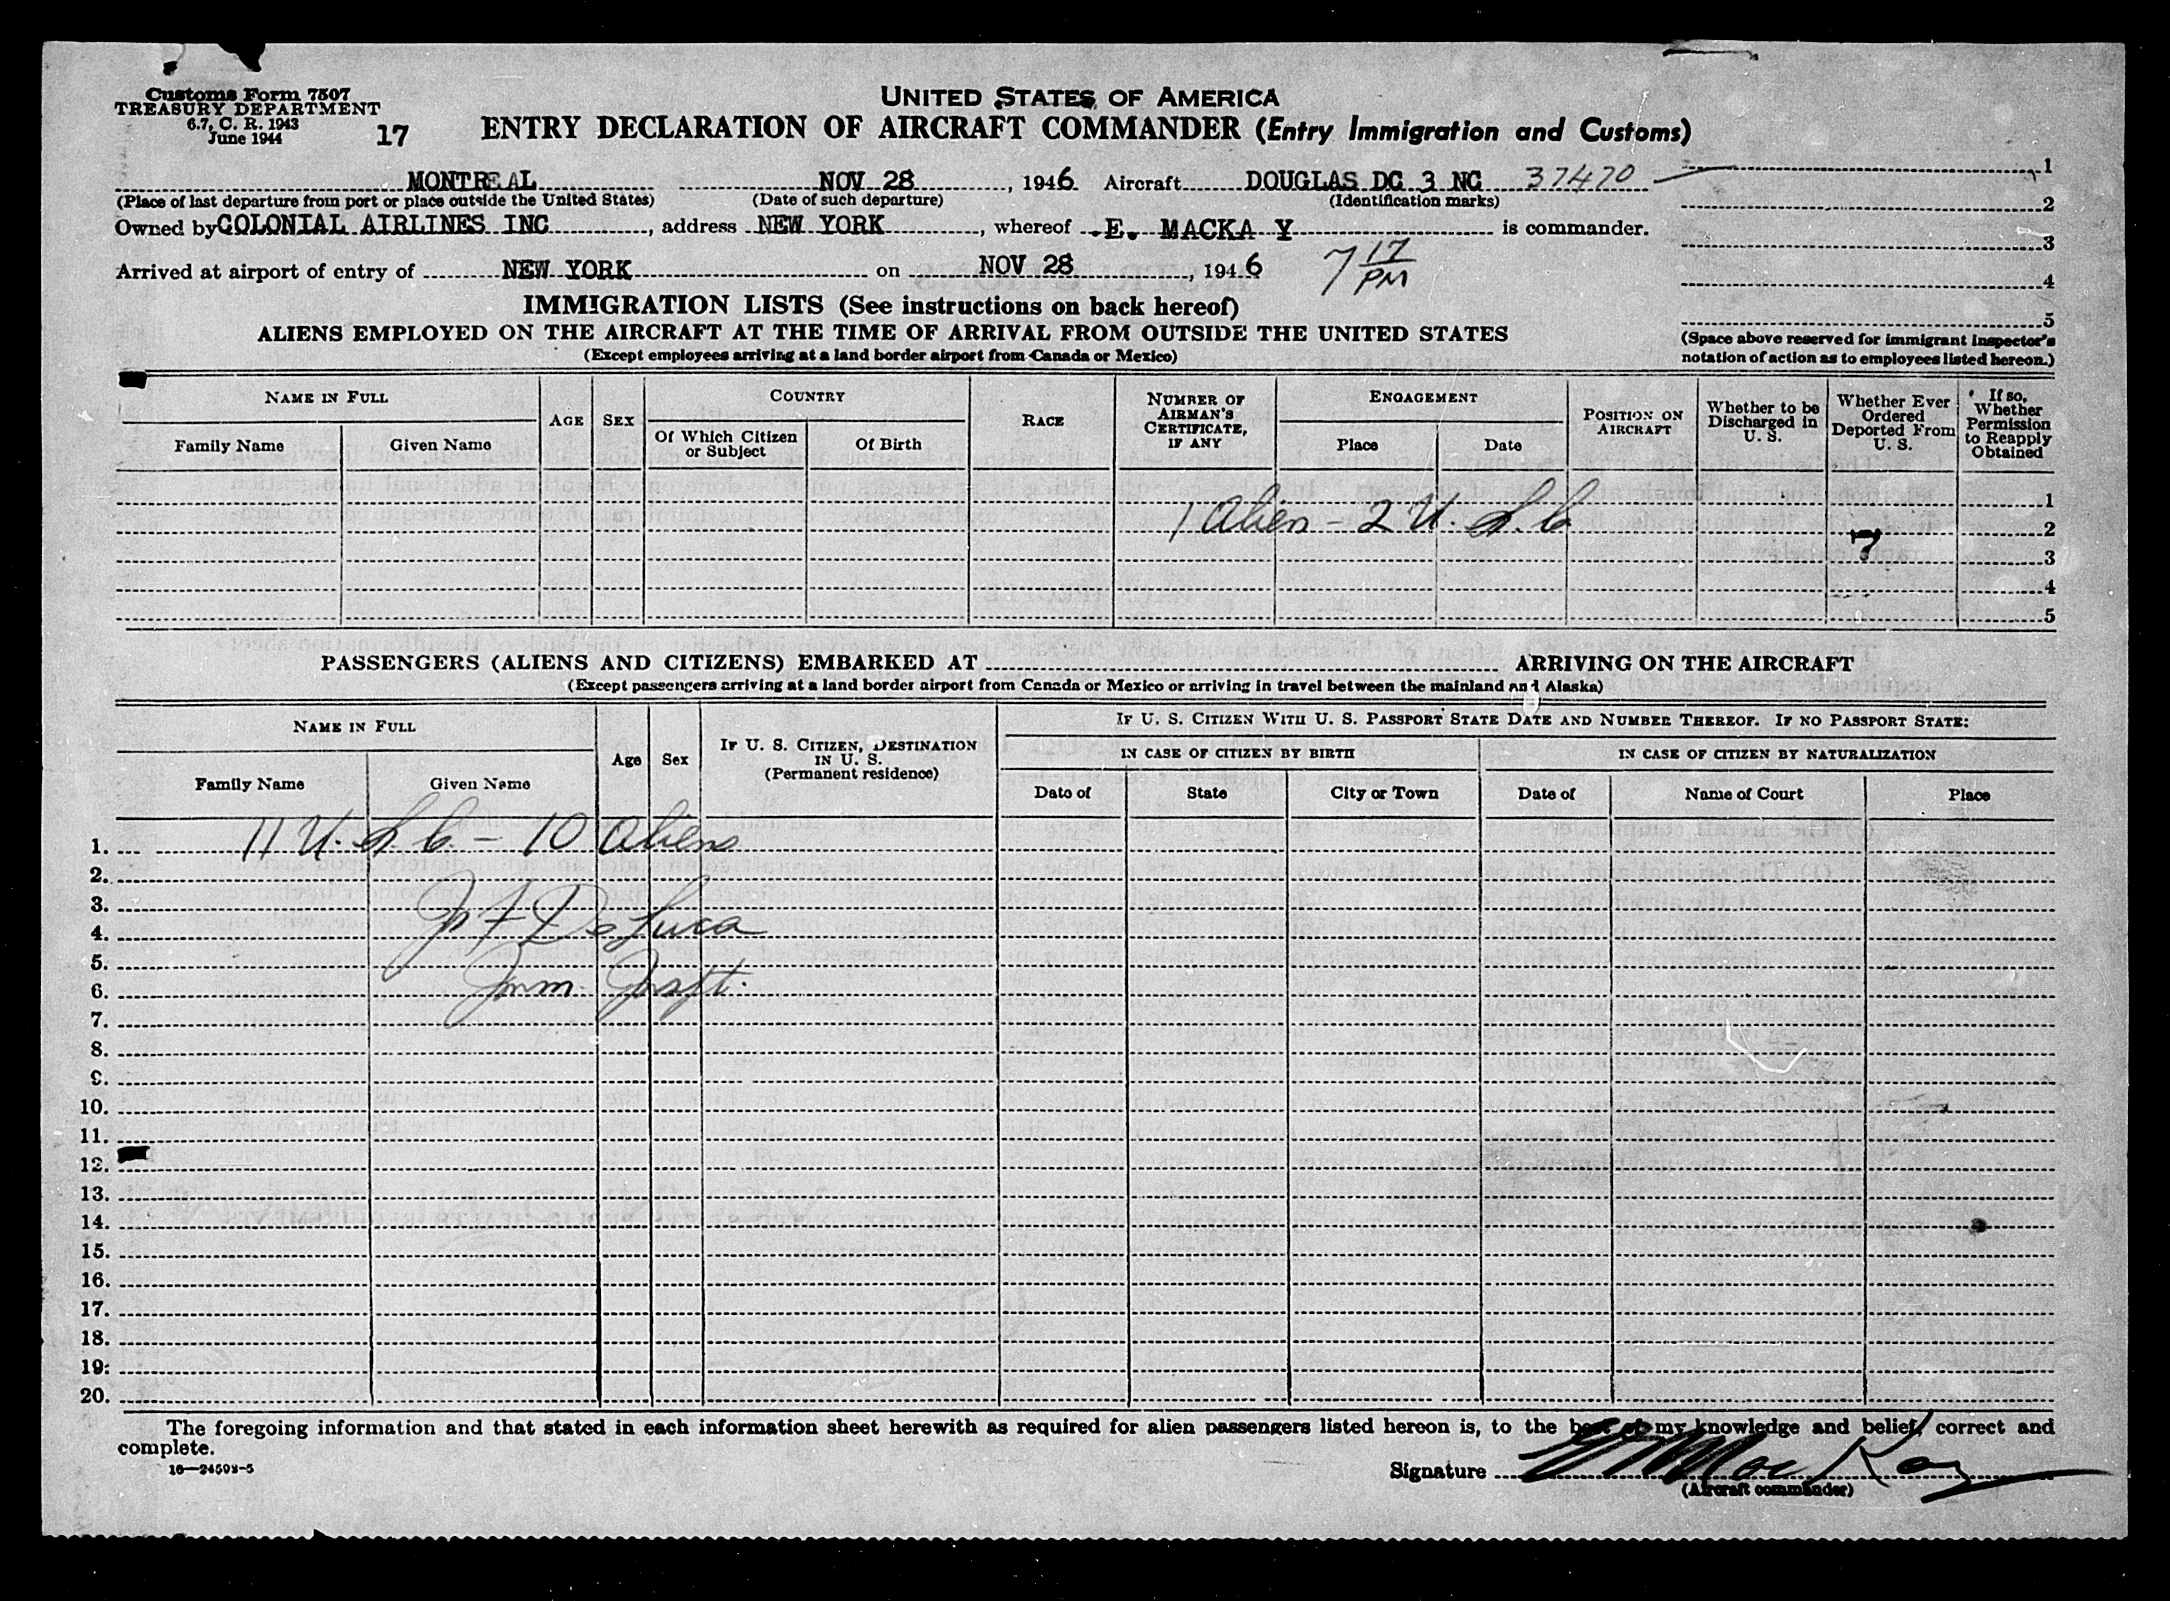 Customs Form 7507
TREASURY DEPARTMENT
6.7, C. R. 1943
June 1944
17
UNITED STATES OF AMERICA
ENTRY DECLARATION OF AIRCRAFT COMMANDER (Entry Immigration and Customs)
MONTREAL NOV 28, 1946 Aircraft DOUGLAS DC 3 NC 37470
(Place of last departure from port or place outside the United States) (Date of such departure) (Identification marks)
Owned by COLONIAL AIRLINES INC, address NEW YORK, whereof .E. MACKA Y is commander.
Arrived at airport of entry of NEW YORK on NOV 28, 1946 7 17 PM
1
2
3
4
5
(Space above reserved for immigrant inspector's
notation of action as to employees listed hereon.)
IMMIGRATION LISTS (See instructions on back hereof)
ALIENS EMPLOYED ON THE AIRCRAFT AT THE TIME OF ARRIVAL FROM OUTSIDE THE UNITED STATES
(Except employees arriving at a land border airport from Canada or Mexico)
NAME IN FULL
Family Name Given Name
AGE SEX
COUNTRY
Of Which Citizen or Subject Of Birth
RACE
NUMBER OF AIRMAN'S CERTIFICATE, IF ANY
ENGAGEMENT
Place Date
POSITION ON AIRCRAFT
Whether to be Discharged in U. S.
Whether Ever Ordered Deported From U. S.
If so, Whether Permission to Reapply Obtained
1
1 Alien - 2 U. S. C. 2
3
4
5
PASSENGERS (ALIENS AND CITIZENS) EMBARKED AT ARRIVING ON THE AIRCRAFT
(Except passengers arriving at a land border airport from Canada or Mexico or arriving in travel between the mainland and Alaska)
NAME IN FULL
Family Name Given Name
Age Sex
IF U. S. CITIZEN, DESTINATION IN U. S.
(Permanent residence)
IF U. S. CITIZEN WITH U. S. PASSPORT STATE DATE AND NUMBER THEREOF. IF NO PASSPORT STATE:
IN CASE OF CITIZEN BY BIRTH IN CASE OF CITIZEN BY NATURALIZATION
Date of State City or Town Date of Name of Court Place
1. 11 U. S. C. - 10 Aliens
2.
3.
4. De Luca
5.
6. Imm. Inspt.
7.
8.
9.
10.
11.
12.
13.
14.
15.
16.
17.
18.
19.
20.
The foregoing information and that stated in each information sheet herewith as required for alien passengers listed hereon is, to the best of my knowledge and belief, correct and
complete.
16—24593-5
Signature E MacKay
(Aircraft commander)